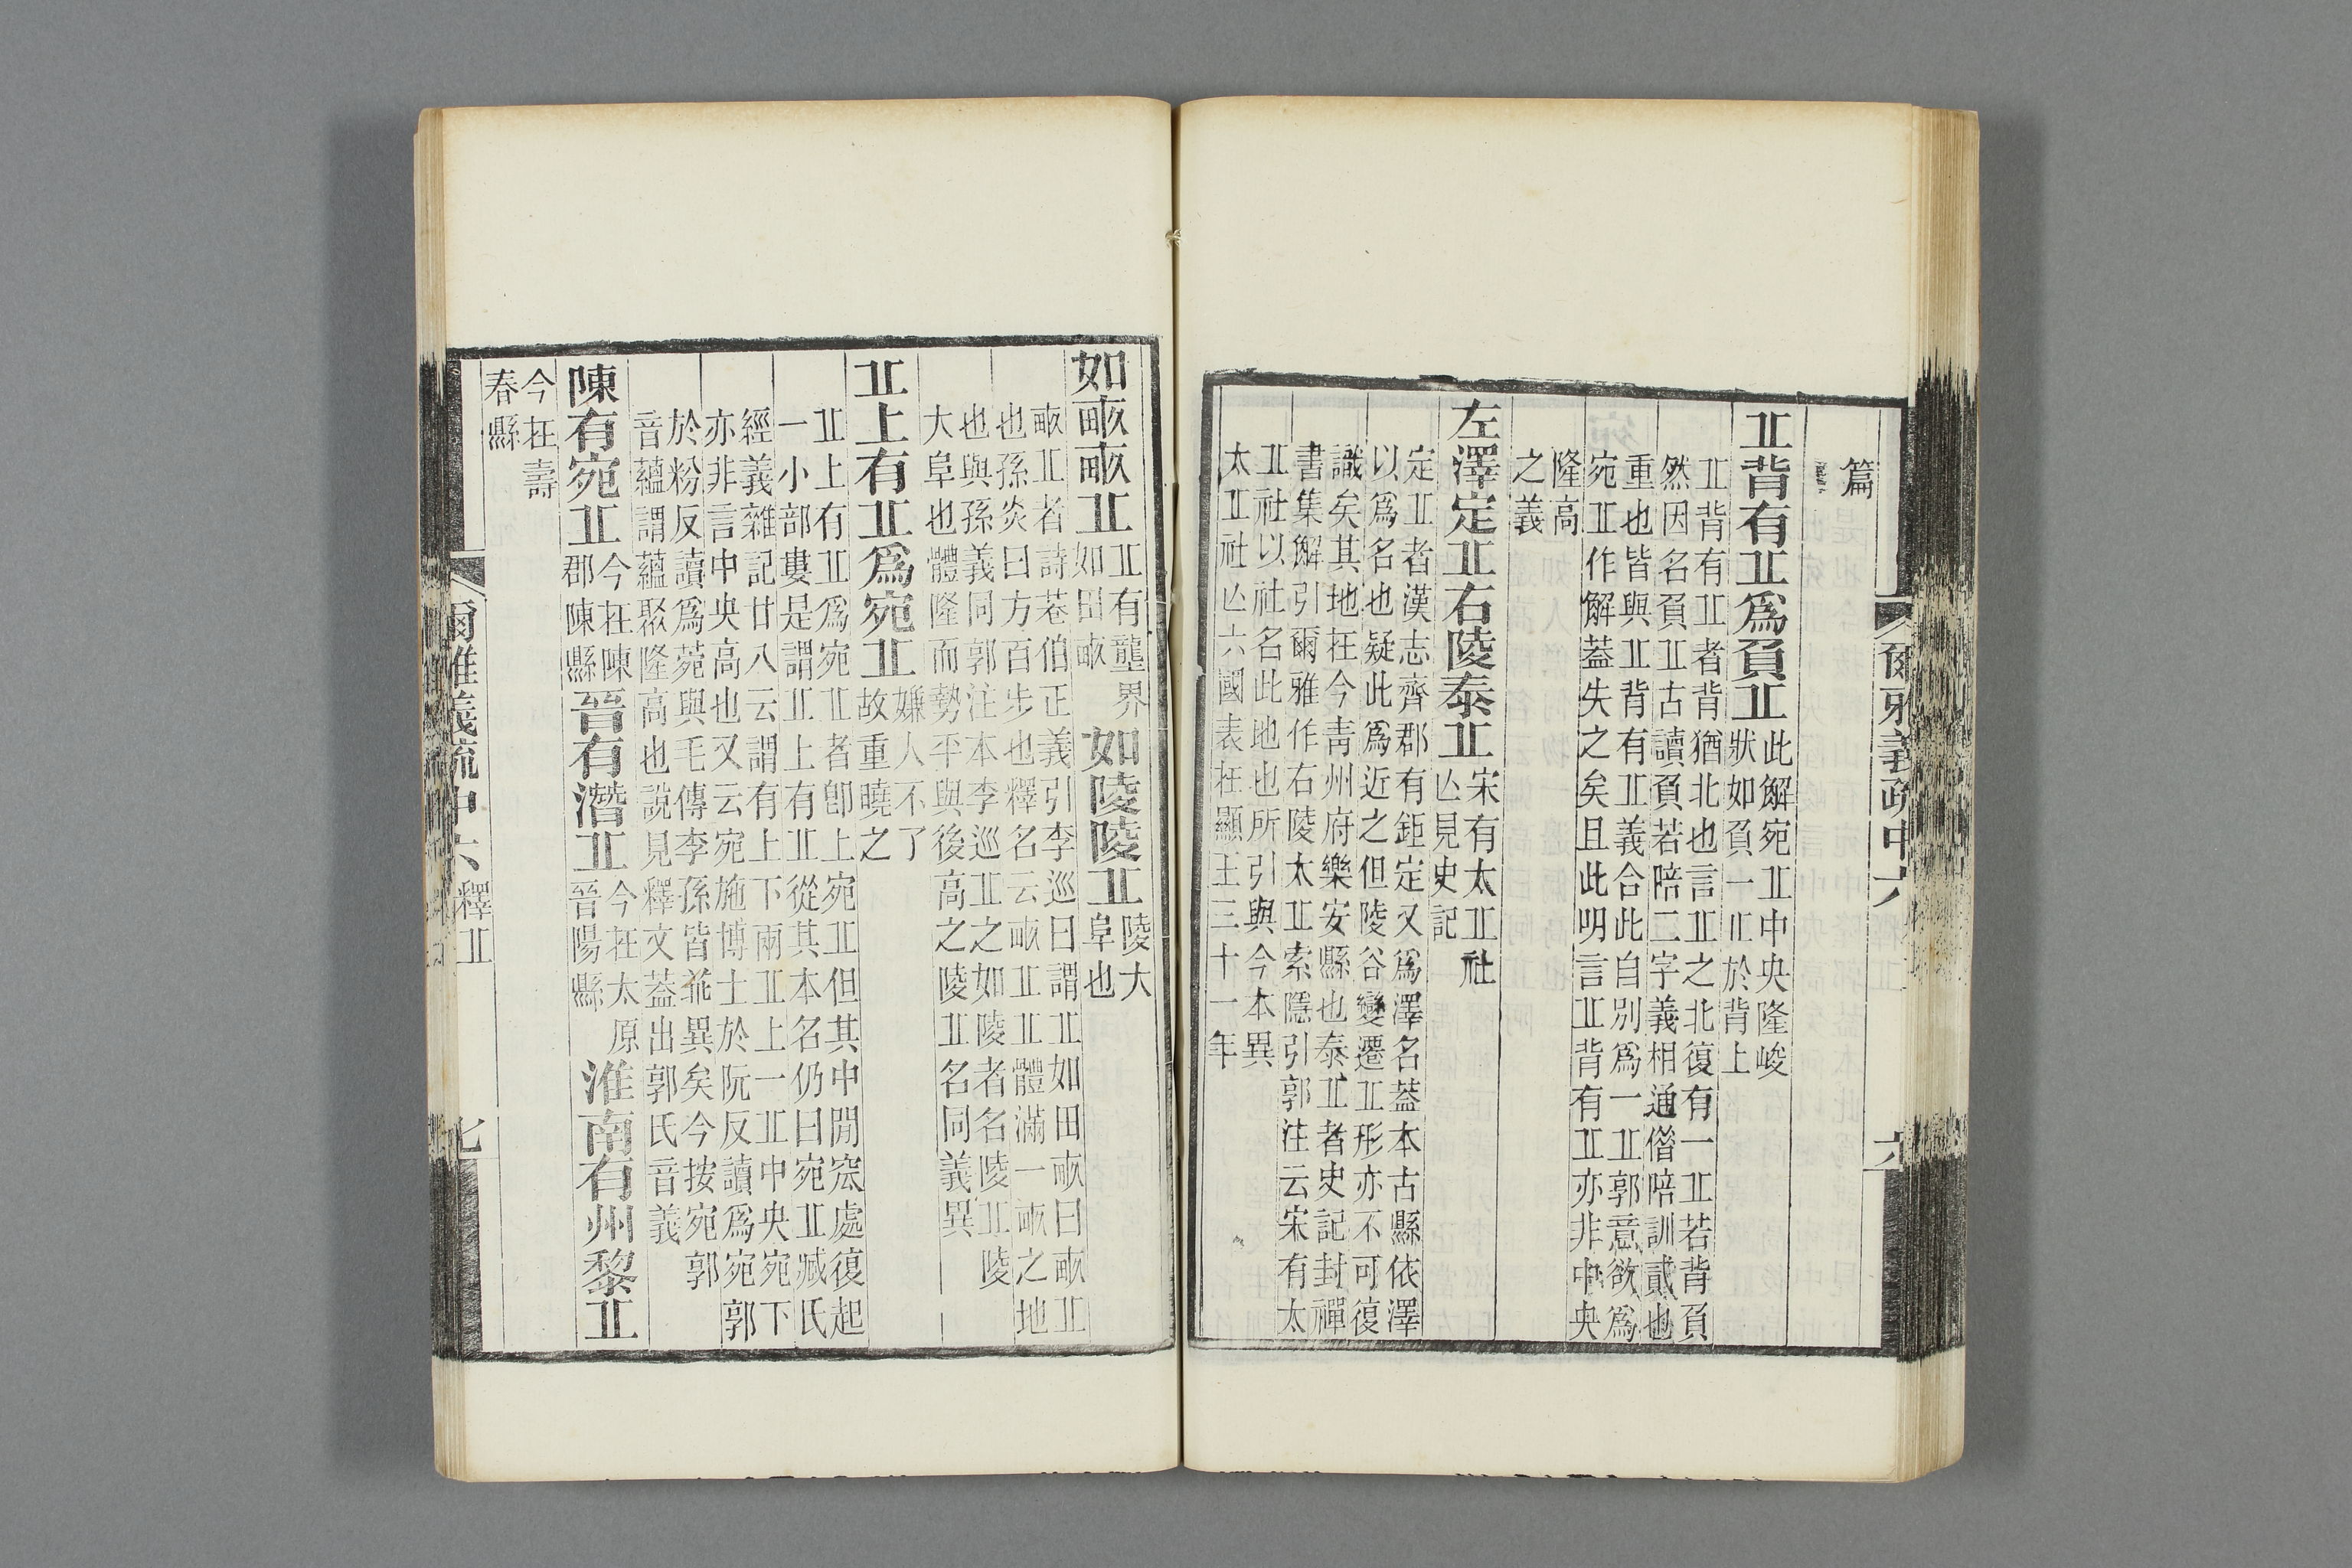 篇
丠背有丠爲負丠
此解宛丠中央隆峻
狀如負一丠於背上
丠背有丠者背猶北也言丠之北復有一丠若背負
然因名負丠古讀負若陪二字義相通僣陪訓貳也
重也皆與丠背有丠義合此自別爲一丠郭意欲爲
宛丠作解葢失之矣且此明言丠背有丠亦非中央
隆高
之義
左澤定丠右陵泰丠
宋有太丠社
亾見史記
定丠者漢志齊郡有鉅定又爲澤名葢本古縣依澤
以爲名也疑此爲近之但陵谷變遷丠形亦不可復
識矣其地在今青州府樂安縣也泰丠者史記封禪
書集解引爾雅作右陵太丠索隱引郭注云宋有太
丠社以社名此地也所引與今本異
太丠社亾六國表在顯王三十一年
爾雅義疏中六
六
如畞畞丠
丠有壟界
如田畞
如陵陵丠
陵大
阜也
畞丠者詩巷伯正義引李巡曰謂丠如田畞曰畞丠
也孫炎曰方百步也釋名云畞丠丠體滿一畞之地
也與孫義同郭注本李巡丠之如陵者名陵丠陵
大阜也體隆而勢平與後高之陵丠名同義異
丠上有丠爲宛丠
嫌人不了
故重曉之
丠上有丠爲宛丠者卽上宛丠但其中閒窊處復起
一小部婁是謂丠上有丠從其本名仍曰宛丠臧氏
經義雜記廿八云謂有上下兩丠上一丠中央宛下
亦非言中央高也又云宛施博士於阮反讀爲宛郭
於粉反讀爲菀與毛傳李孫皆乖異矣今按宛郭
音蘊謂蘊聚隆高也說見釋文葢出郭氏音義
陳有宛丠
今在陳
郡陳縣
晉有潛丠
今在太原
晉陽縣
淮南有州黎丠
今在壽
春縣
爾雅義疏中六
釋丠
七